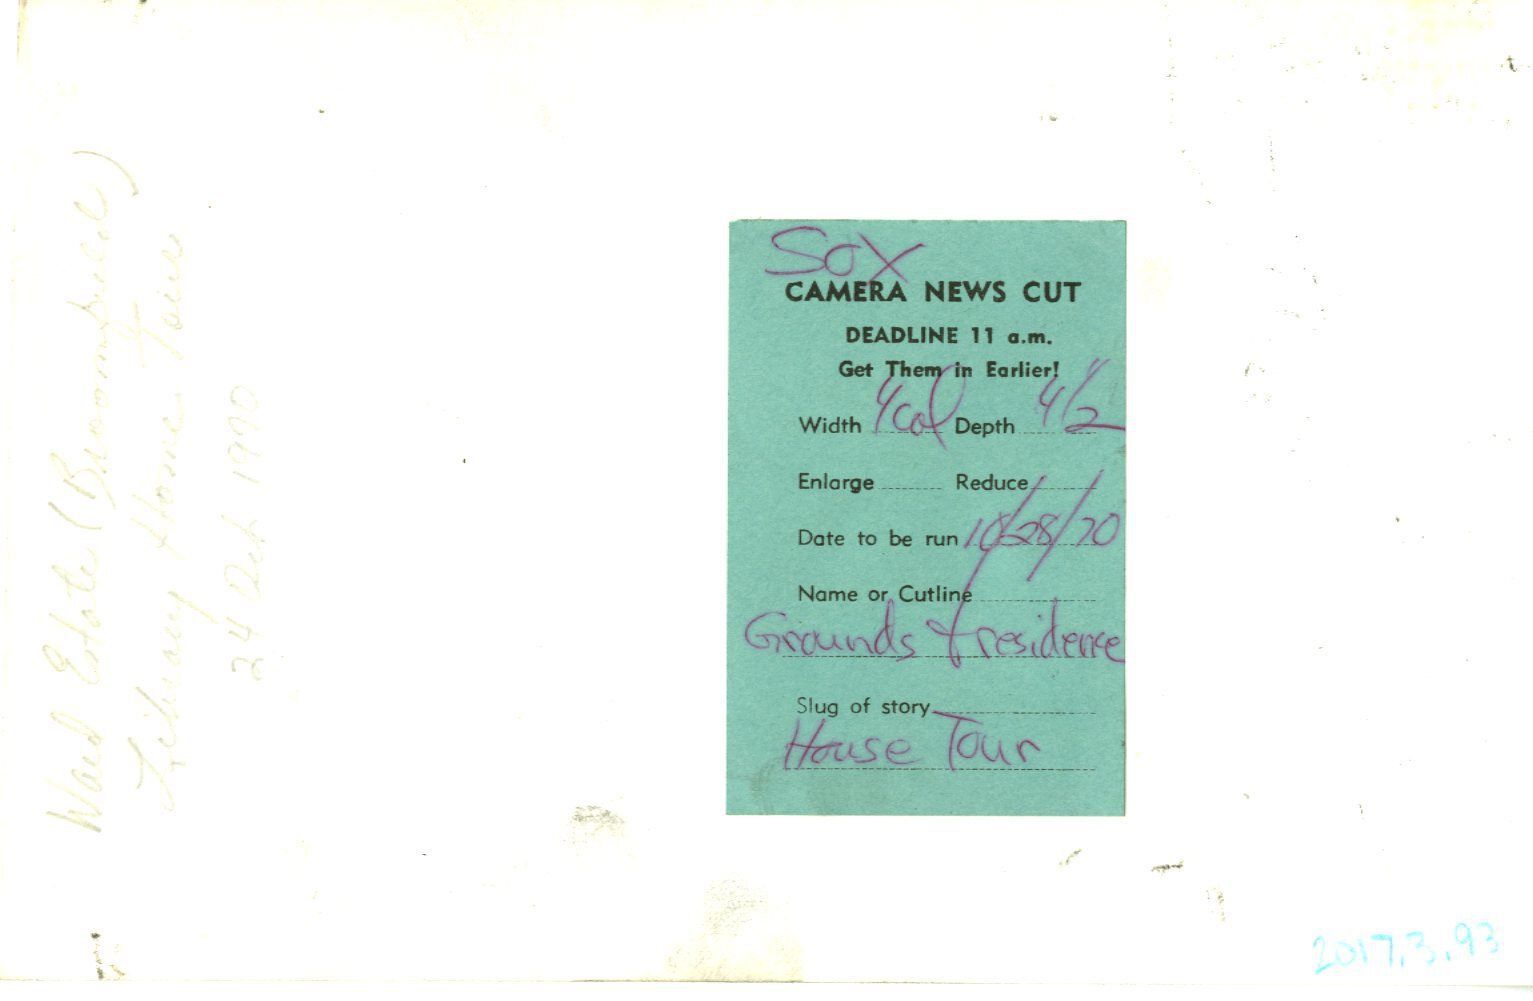 Estate (Broomfield)
Library Home Tour
24 Oct 1970
SOX
CAMERA NEWS CUT
DEADLINE 11 a.m.
Get Them in Earlier!
Width 4col Depth 4 1/2
Enlarge Reduce
Date to be run 10/28/70
Name or Cutline
Grounds & residence
Slug of story
House Tour
2017.3.93